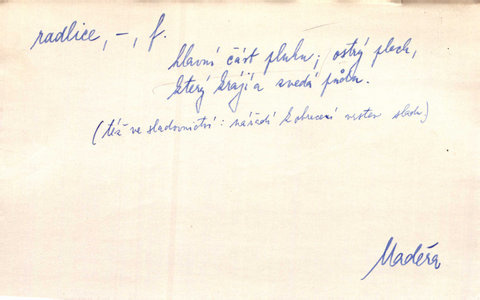 radlice, -, f.
hlavní část pluhu; ostrý plech,
který krájí a zvedá půdu.
(též ve sladovnictví: nářadí k obracení vrstev sladu)
Maděra